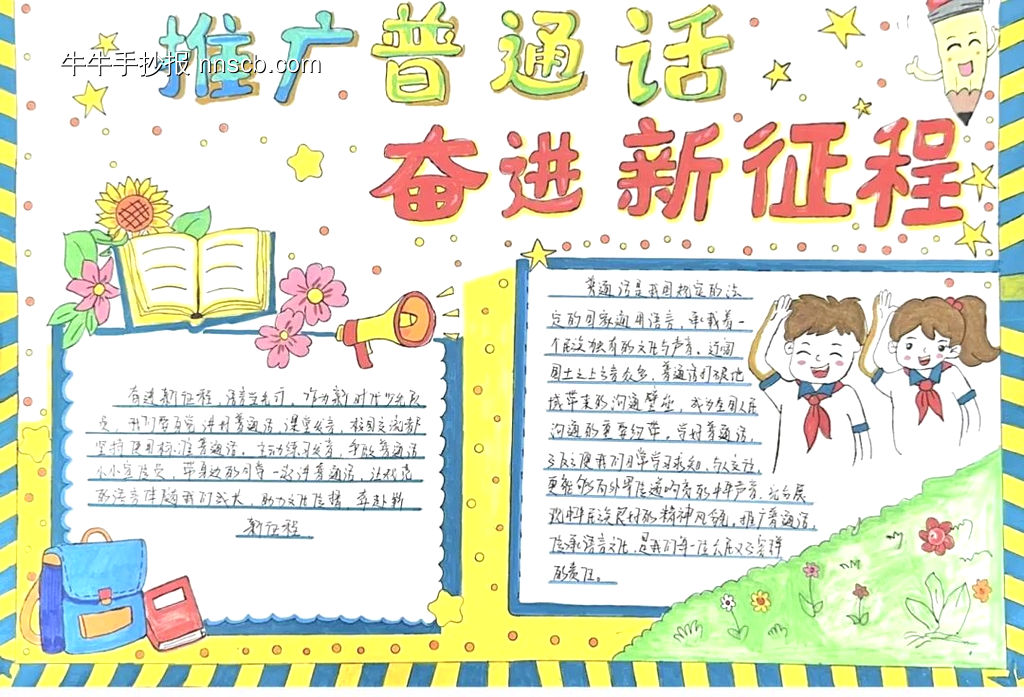 牛牛手抄报 nnscb.com
推广普通话
奋进新征程
奋进新征程,语言当先行,作为新时代少先队
员,我们要自觉讲好普通话,课堂发言,校园交流都
坚持使用标准普通话。主动练习发音,争做普通话
小小宣传员,带身边的同学一起讲普通话,让规范
的语言伴随我们成长,助力文化传播,奔赴新
新征程。
普通话是我国规定的法
定的国家通用语言,承载着一
个民族独有的文化与声音。辽阔
国土之上方言众多,普通话打破地
域带来的沟通壁垒,成为全国人民
沟通的重要纽带。学好普通话,
不仅方便我们日常学习求知、与人交往,
更能够向外界传递响亮的中华声音,
民族良好的精神风貌,推广普通话,
传承语言文化,是我们每一位公民义不容辞
的责任。